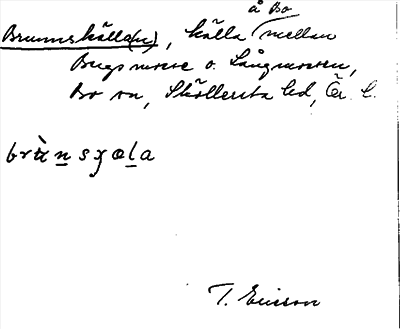 å Bo
Brunnskälla(n), källa mellan
Bugs mosse o. Långmossen,
Bo sn, Sköllersta hd, Ör. l.
brùn̲sχœl̲a
T. Ericson